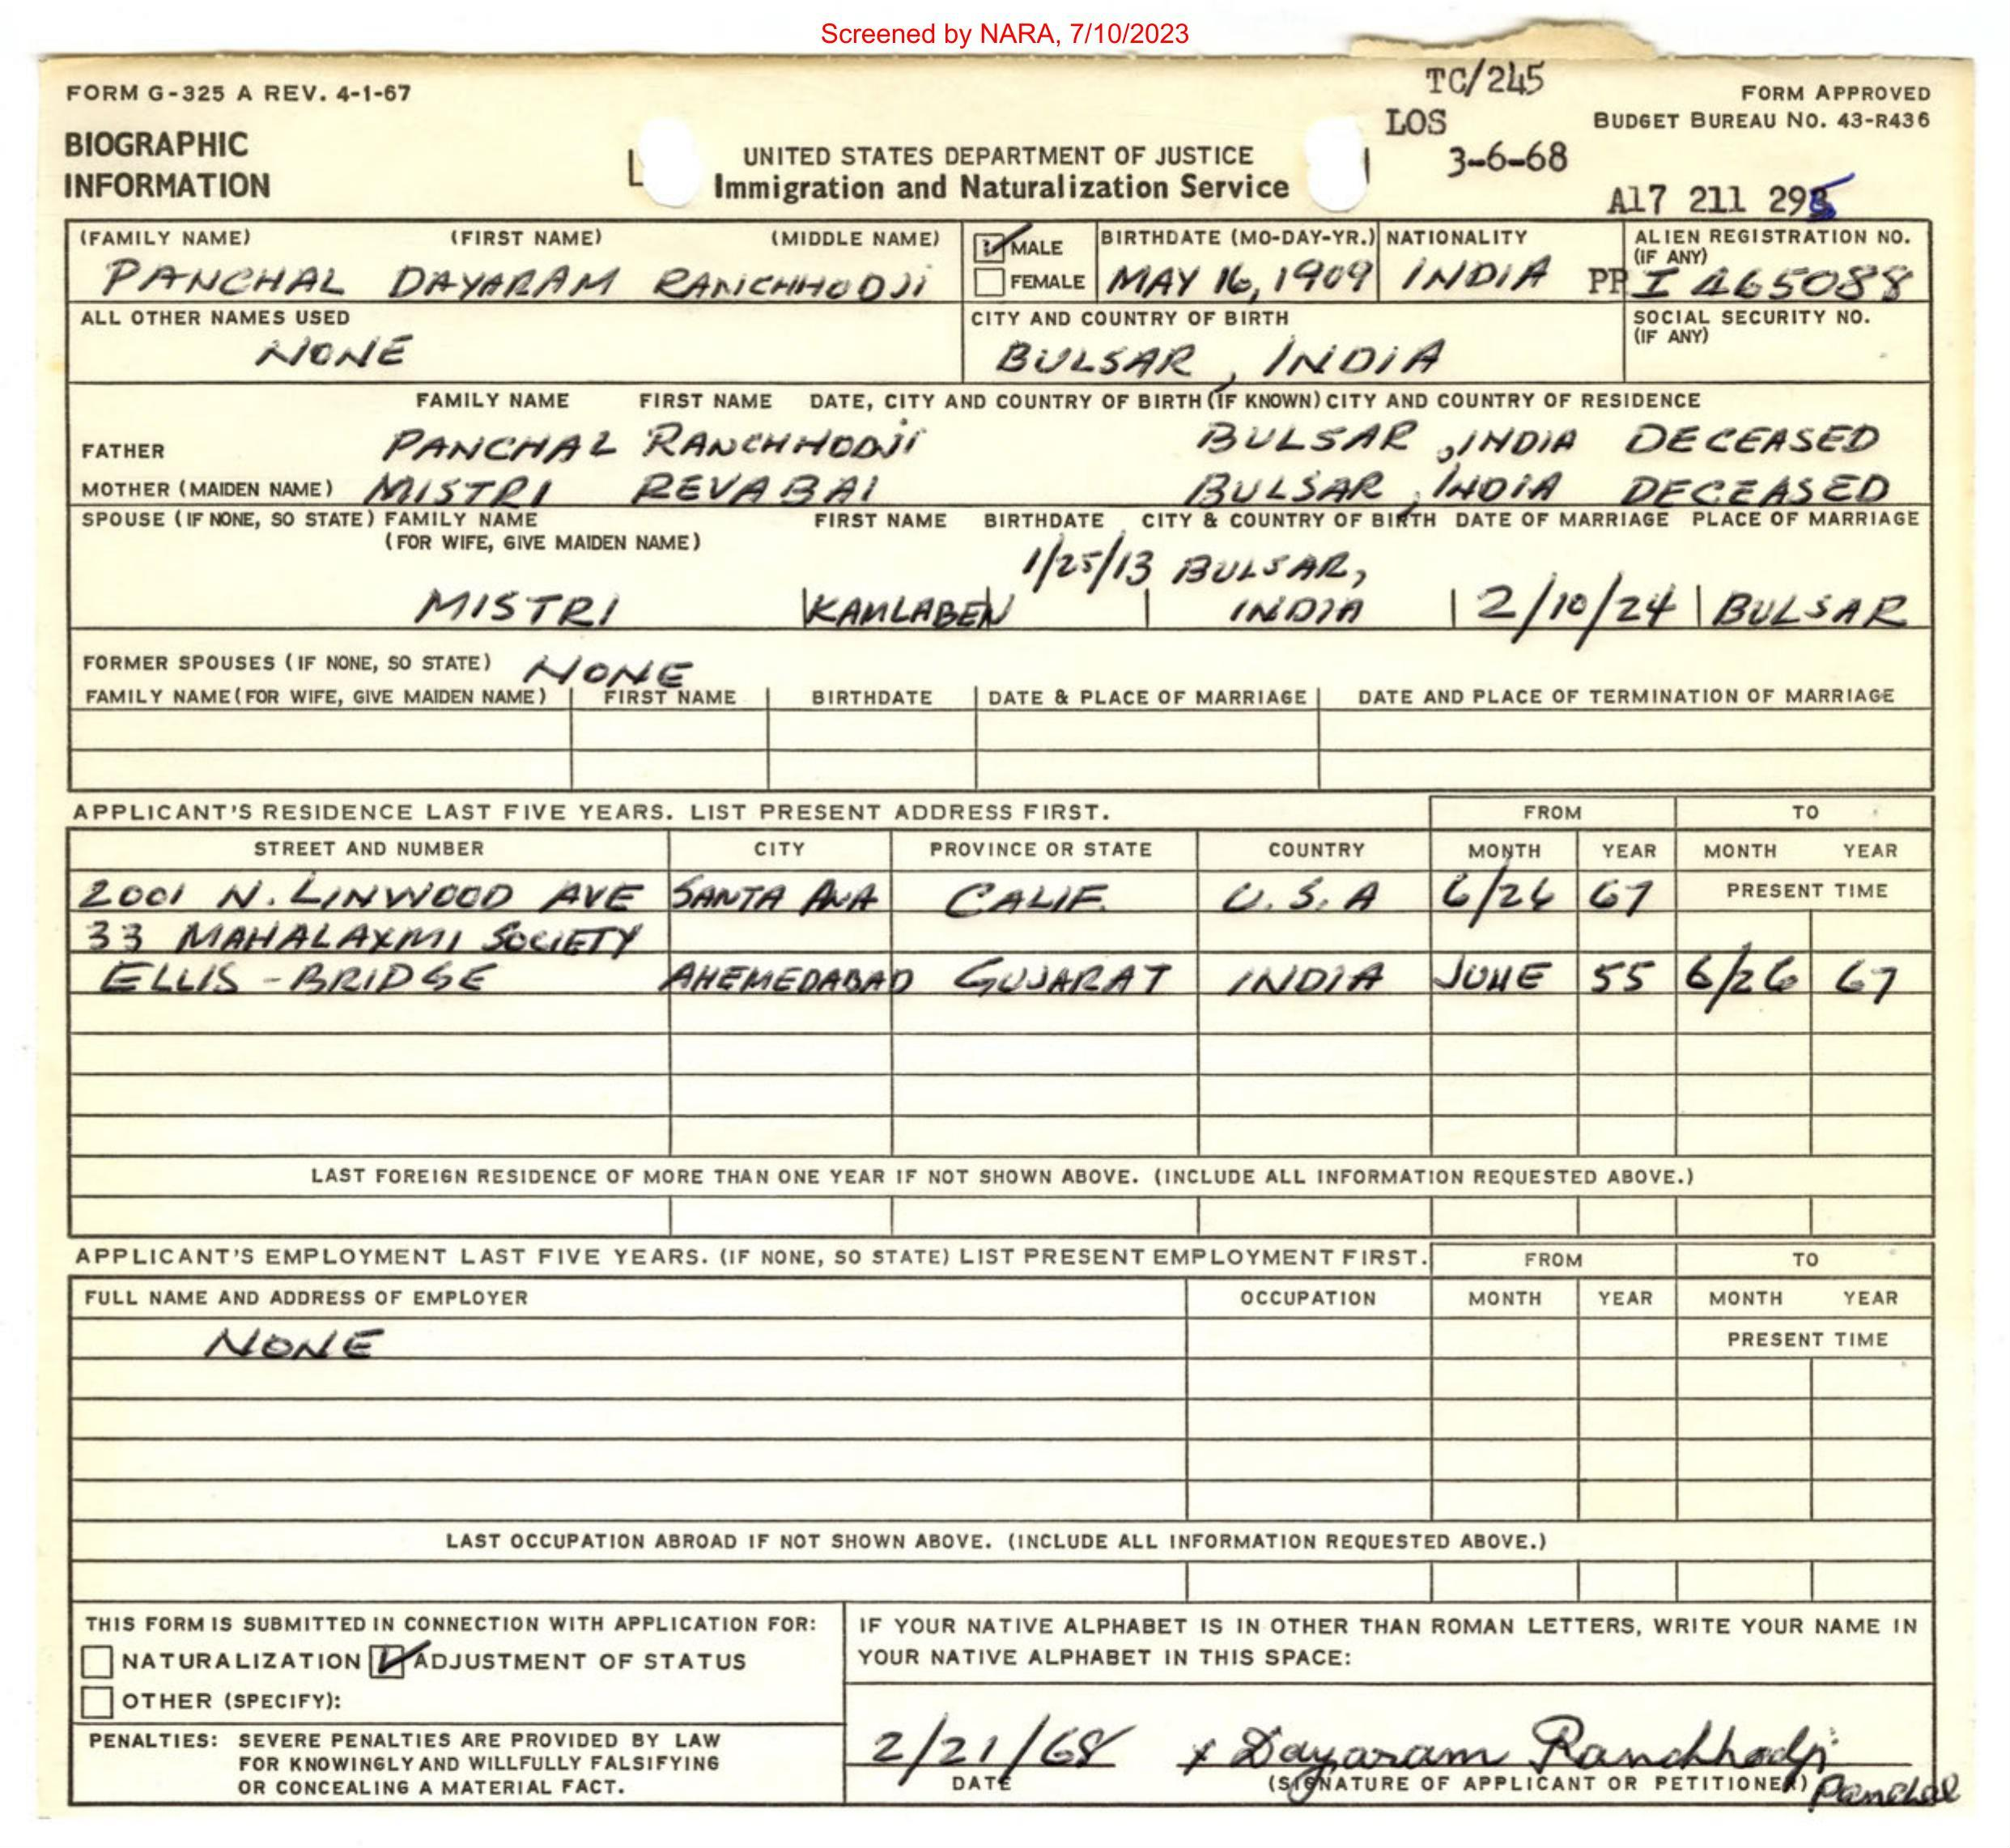 Screened by NARA, 7/10/2023
FORM G-325 A REV. 4-1-67
TC/245
FORM APPROVED
LOS
BUDGET BUREAU NO. 43-R436
BIOGRAPHIC
INFORMATION
UNITED STATES DEPARTMENT OF JUSTICE
Immigration and Naturalization Service
3-6-68
A17 211 295
(FAMILY NAME) (FIRST NAME) (MIDDLE NAME) MALE BIRTHDATE (MO-DAY-YR.) NATIONALITY ALIEN REGISTRATION NO.
(IF ANY)
PANCHAL DAYARAM RANCHHODJI FEMALE MAY 16, 1909 INDIA PP I 465088
ALL OTHER NAMES USED CITY AND COUNTRY OF BIRTH SOCIAL SECURITY NO.
(IF ANY)
NONE BULSAR, INDIA
FAMILY NAME FIRST NAME DATE, CITY AND COUNTRY OF BIRTH (IF KNOWN) CITY AND COUNTRY OF RESIDENCE
FATHER PANCHAL RANCHHODJI BULSAR, INDIA DECEASED
MOTHER (MAIDEN NAME) MISTRI REVABAI BULSAR, INDIA DECEASED
SPOUSE (IF NONE, SO STATE) FAMILY NAME FIRST NAME BIRTHDATE CITY & COUNTRY OF BIRTH DATE OF MARRIAGE PLACE OF MARRIAGE
(FOR WIFE, GIVE MAIDEN NAME)
1/25/13 BULSAR,
MISTRI KAMLABEN INDIA 2/10/24 BULSAR
FORMER SPOUSES (IF NONE, SO STATE) NONE
FAMILY NAME (FOR WIFE, GIVE MAIDEN NAME) FIRST NAME BIRTHDATE DATE & PLACE OF MARRIAGE DATE AND PLACE OF TERMINATION OF MARRIAGE
APPLICANT'S RESIDENCE LAST FIVE YEARS. LIST PRESENT ADDRESS FIRST. FROM TO
STREET AND NUMBER CITY PROVINCE OR STATE COUNTRY MONTH YEAR MONTH YEAR
2001 N. LINWOOD AVE SANTA ANA CALIF. U.S.A 6/26 67 PRESENT TIME
33 MAHALAXMI SOCIETY
ELLIS-BRIDGE AHEMEDABAD GUJARAT INDIA JUNE 55 6/26 67
LAST FOREIGN RESIDENCE OF MORE THAN ONE YEAR IF NOT SHOWN ABOVE. (INCLUDE ALL INFORMATION REQUESTED ABOVE.)
APPLICANT'S EMPLOYMENT LAST FIVE YEARS. (IF NONE, SO STATE) LIST PRESENT EMPLOYMENT FIRST. FROM TO
FULL NAME AND ADDRESS OF EMPLOYER OCCUPATION MONTH YEAR MONTH YEAR
NONE PRESENT TIME
LAST OCCUPATION ABROAD IF NOT SHOWN ABOVE. (INCLUDE ALL INFORMATION REQUESTED ABOVE.)
THIS FORM IS SUBMITTED IN CONNECTION WITH APPLICATION FOR:
NATURALIZATION ADJUSTMENT OF STATUS
OTHER (SPECIFY):
IF YOUR NATIVE ALPHABET IS IN OTHER THAN ROMAN LETTERS, WRITE YOUR NAME IN
YOUR NATIVE ALPHABET IN THIS SPACE:
PENALTIES: SEVERE PENALTIES ARE PROVIDED BY LAW
FOR KNOWINGLY AND WILLFULLY FALSIFYING
OR CONCEALING A MATERIAL FACT.
2/21/68 x Dayaram Ranchhodji
DATE (SIGNATURE OF APPLICANT OR PETITIONER) Panchal